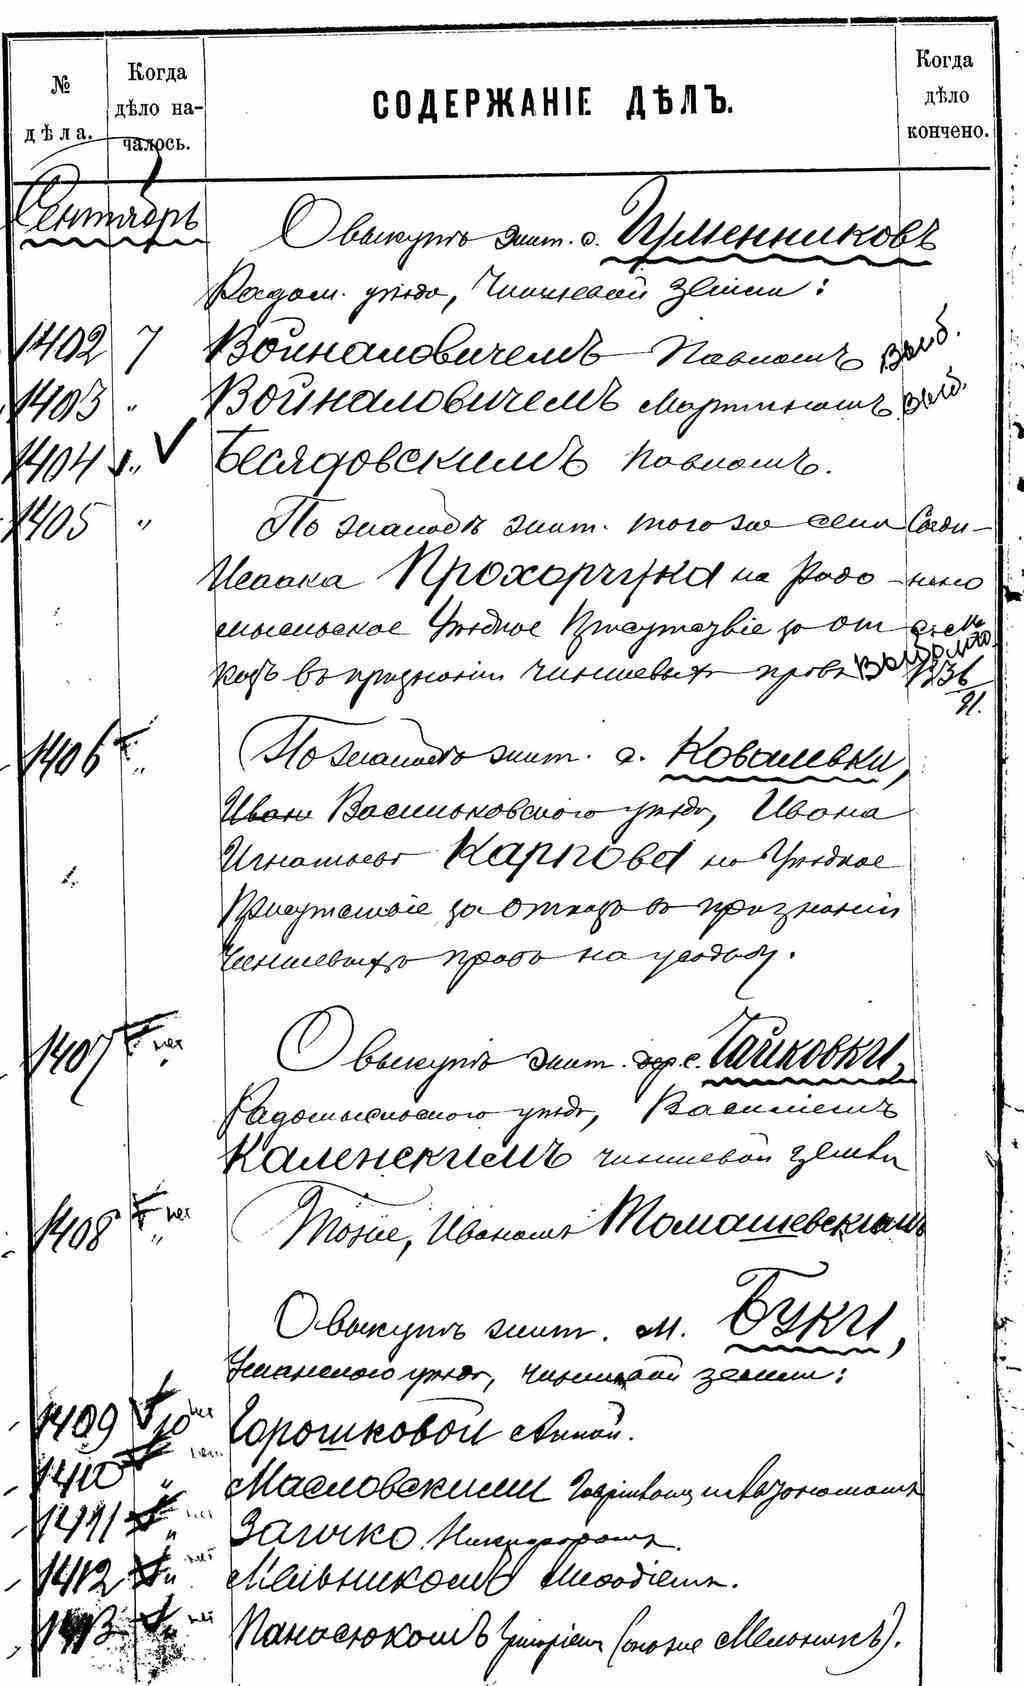 № дѣла.
Когда дѣло началось.
СОДЕРЖАНІЕ ДѢЛЪ.
Когда дѣло кончено.
Сентябрь
О выкупѣ жит. с.
Радом. уѣзда, Чиншевой земли:
1402 7 Войналовичемъ Павломъ выб.
1403 „ Войналовичемъ Мартиномъ выб.
1404 „ Бесядовскимъ Павломъ.
1405 „ По жалобѣ жит. того же села Соеди-
Исаака Прохорчука на Радо- нено
мысльское Уѣздное Присутствіе за от с дѣл.
казъ въ признаніи чиншевыхъ правъ выбыло 1336/91.
1406 „ По жалобѣ жит. с. Ковалевки,
Ивана Васильковского уѣзда, Ивана
Игнатьева Карпова на Уѣздное
Присутствіе за отказъ въ признаніи
чиншевыхъ правъ на усадьбу.
1407 нет „ О выкупѣ жит. дер. с. Чайковки,
Радомысльского уѣзда, Василіемъ
Каленскимъ чиншевой земли
1408 нет „ Тоже, Иваномъ Томашевскимъ
О выкупѣ жит. м. Буки,
Уманского уѣзда, чиншевой земли:
1409 10 нет Горошковой Анной.
1410 „ нет Масловскими
1411 „ нет Заичко Никифоромъ.
1412 „ нет Мельникомъ Мефодіемъ.
1413 „ нет Панасюкомъ Григоріемъ (онъ же Мельникъ).